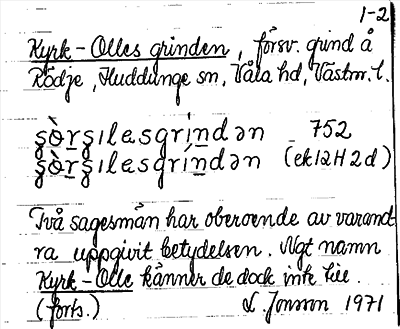 1-2
Kyrk-Olles grinden, försv. grind å
Rödje, Huddunge sn, Våla hd, Västm. l.
şòrşɩlesgríndən 752
şòrşɩlasgríndən (ek 12H2d)
Två sagesmän har oberoende av varand-
ra uppgivit betydelsen. Ngt namn
Kyrk-Olle känner de dock inte till.
(forts.) L. Jonsson 1971